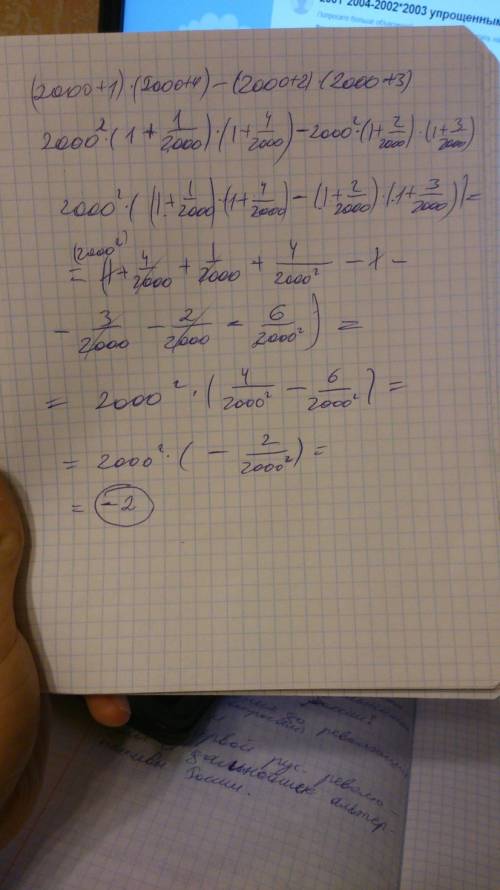 2001 2004-2002*2003 упрощенным
(2000+1)·(2000+4)-(2000+2)·(2000+3)
2000²·(1+1/2000)·(1+4/2000)-2000²·(1+2/2000)·(1+3/2000)
2000²·((1+1/2000)·(1+4/2000)-(1+2/2000)·(1+3/2000))=
(2000²)
= (1+4/2000+1/2000+4/2000²-1-
-3/2000-2/2000-6/2000²)=
= 2000²·(4/2000²-6/2000²)=
= 2000²·(-2/2000²)=
= -2
рус. револю-
альтер-